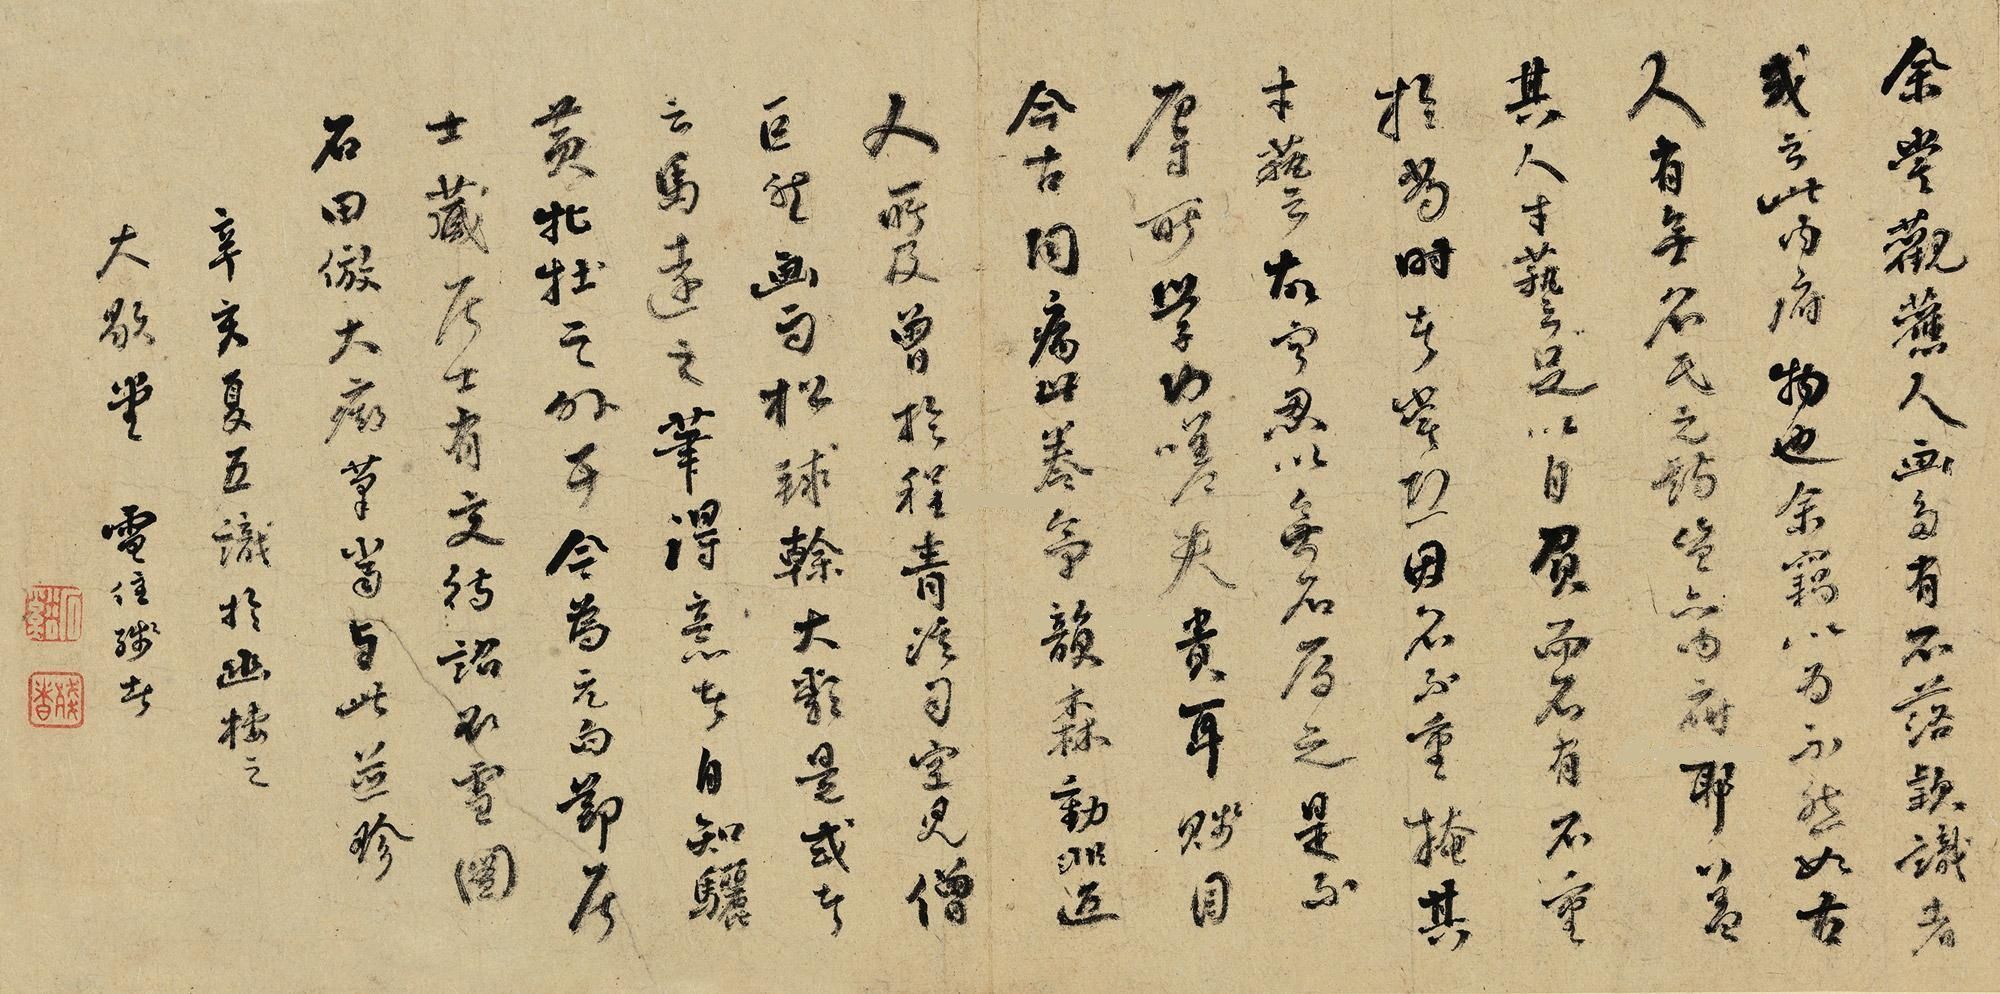 余嘗觀舊人画多有不落款識者
或云此內府物也余竊以為不然如古
人有無名氏之詩豈亦內府耶蓋
其人才藝足以自負而名有不重
於當時者嘆恐因名不重掩其
才藝云故寧忍以無名居之是不
辱所學也嗟夫貴耳賤目
今古同病此卷氣韻森動非近
人所及曾於程青溪司空見僧
巨然画有松球輪大類是或者
云馬遠之筆得意者自知驪
黃牝牡之外耳今為元白鄭居
士藏居士有文待詔臥雪圖
石田倣大癡筆當与此並珍
辛亥夏五識於幽棲之
大歇堂 電住殘者